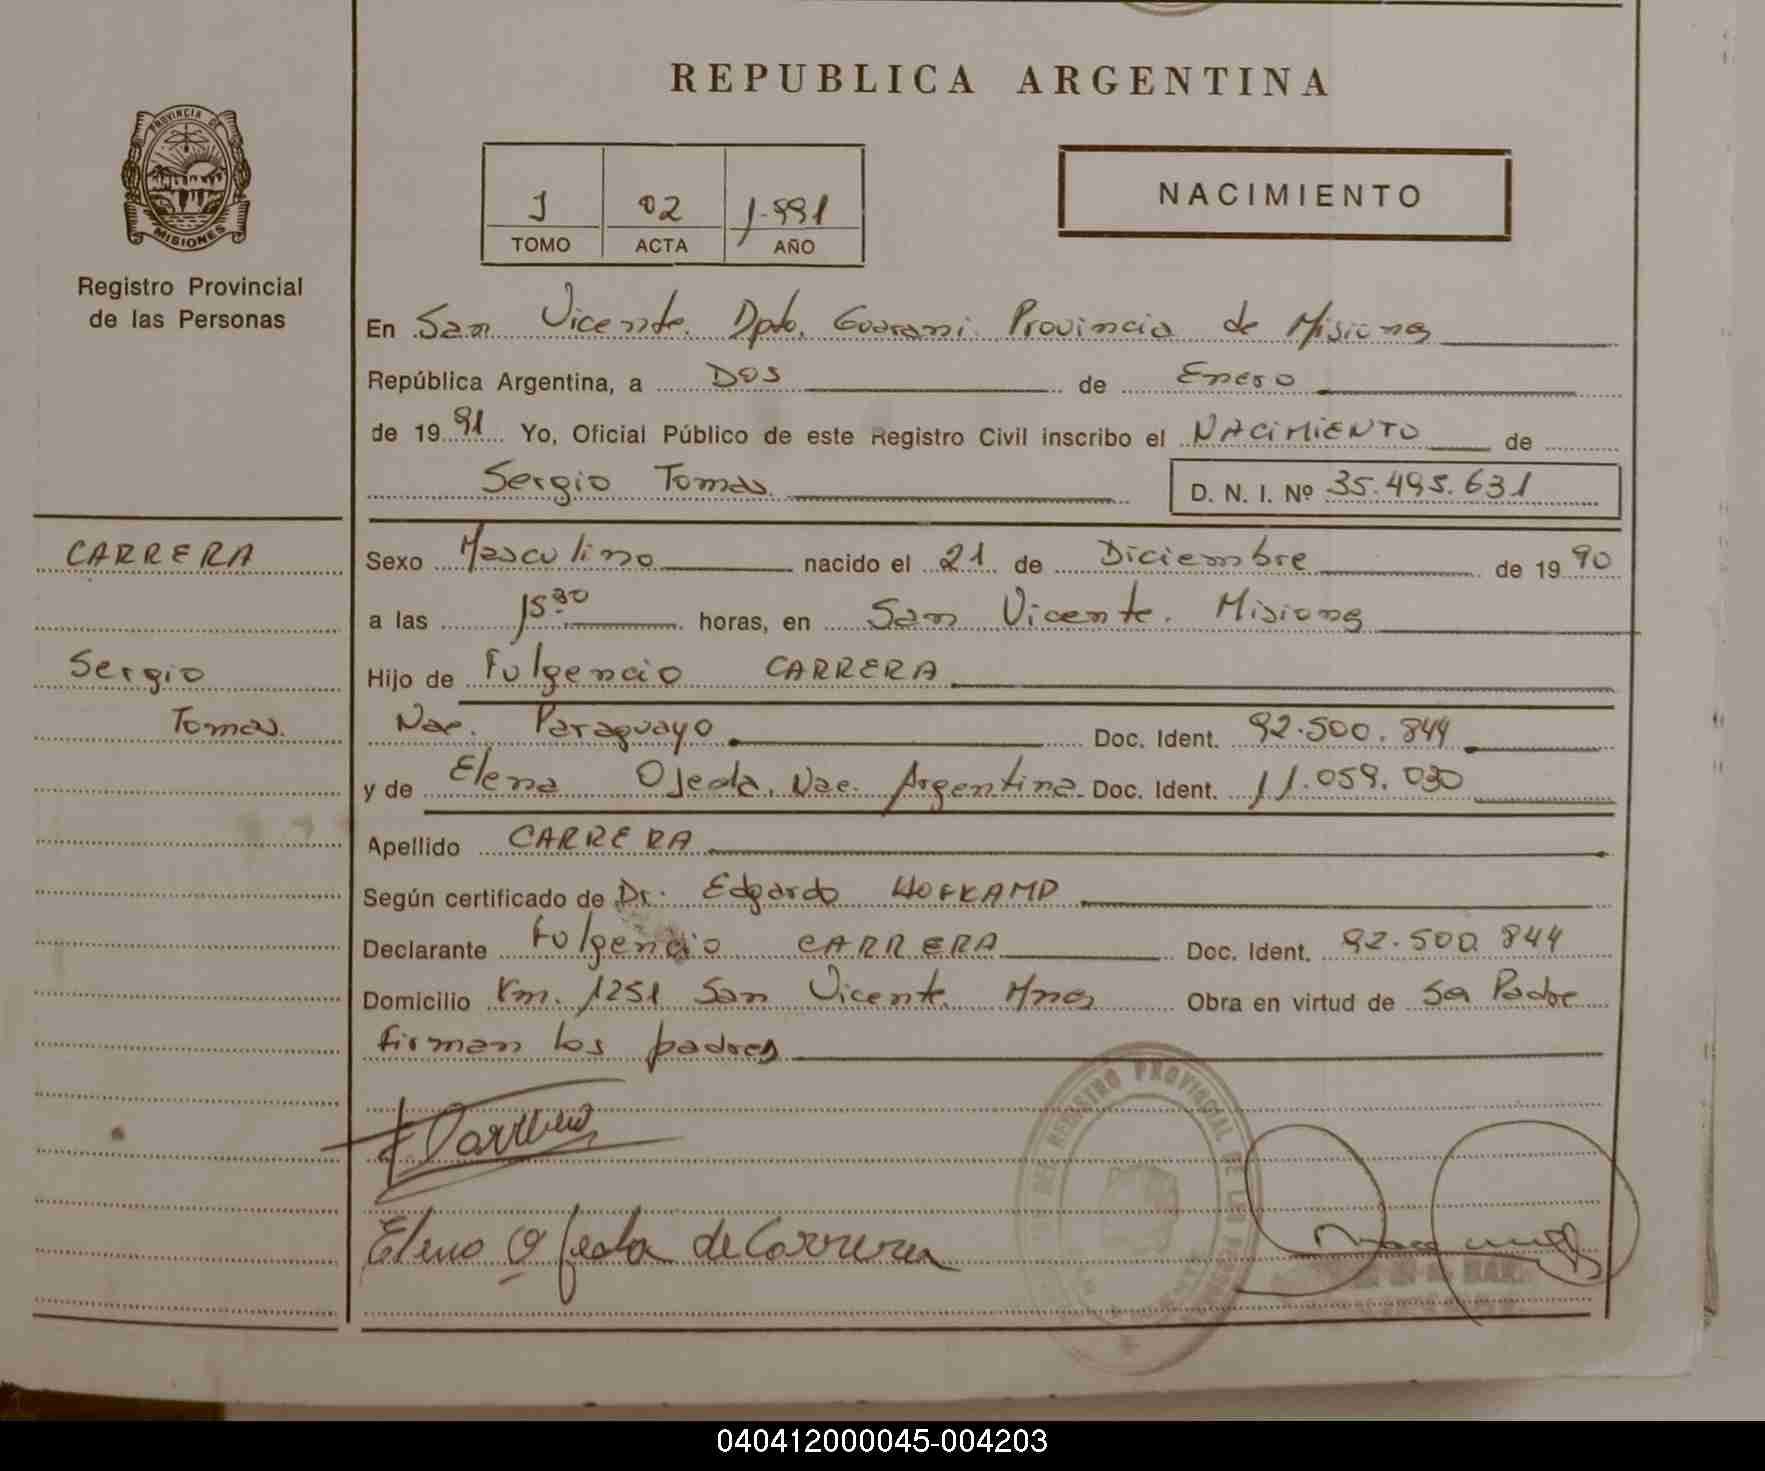 REPUBLICA ARGENTINA
PROVINCIA DE
MISIONES
Registro Provincial
de las Personas
1 02 1.991
TOMO ACTA AÑO
NACIMIENTO
En San Vicente. Dpto. Guarani. Provincia de Misiones
República Argentina, a Dos de Enero
de 19 91 Yo, Oficial Público de este Registro Civil inscribo el NACIMIENTO de
Sergio Tomas D. N. I. Nº 35.495.631
CARRERA
Sergio
Tomas.
Sexo Masculino nacido el 21 de Diciembre de 19 90
a las 15 30 horas, en San Vicente. Misiones
Hijo de Fulgencio CARRERA
Nac. Paraguayo Doc. Ident. 92.500.844
y de Elena Ojeda. Nac. Argentina Doc. Ident. 11.059.030
Apellido CARRERA
Según certificado de Dr. Edgardo HOFKAMP
Declarante Fulgencio CARRERA Doc. Ident. 92.500 844
Domicilio Km. 1251 San Vicente Mnes Obra en virtud de Ser Padre
firman los padres
Elena Ojeda de Carrera
REGISTRO PROVINCIAL DE LAS
040412000045-004203